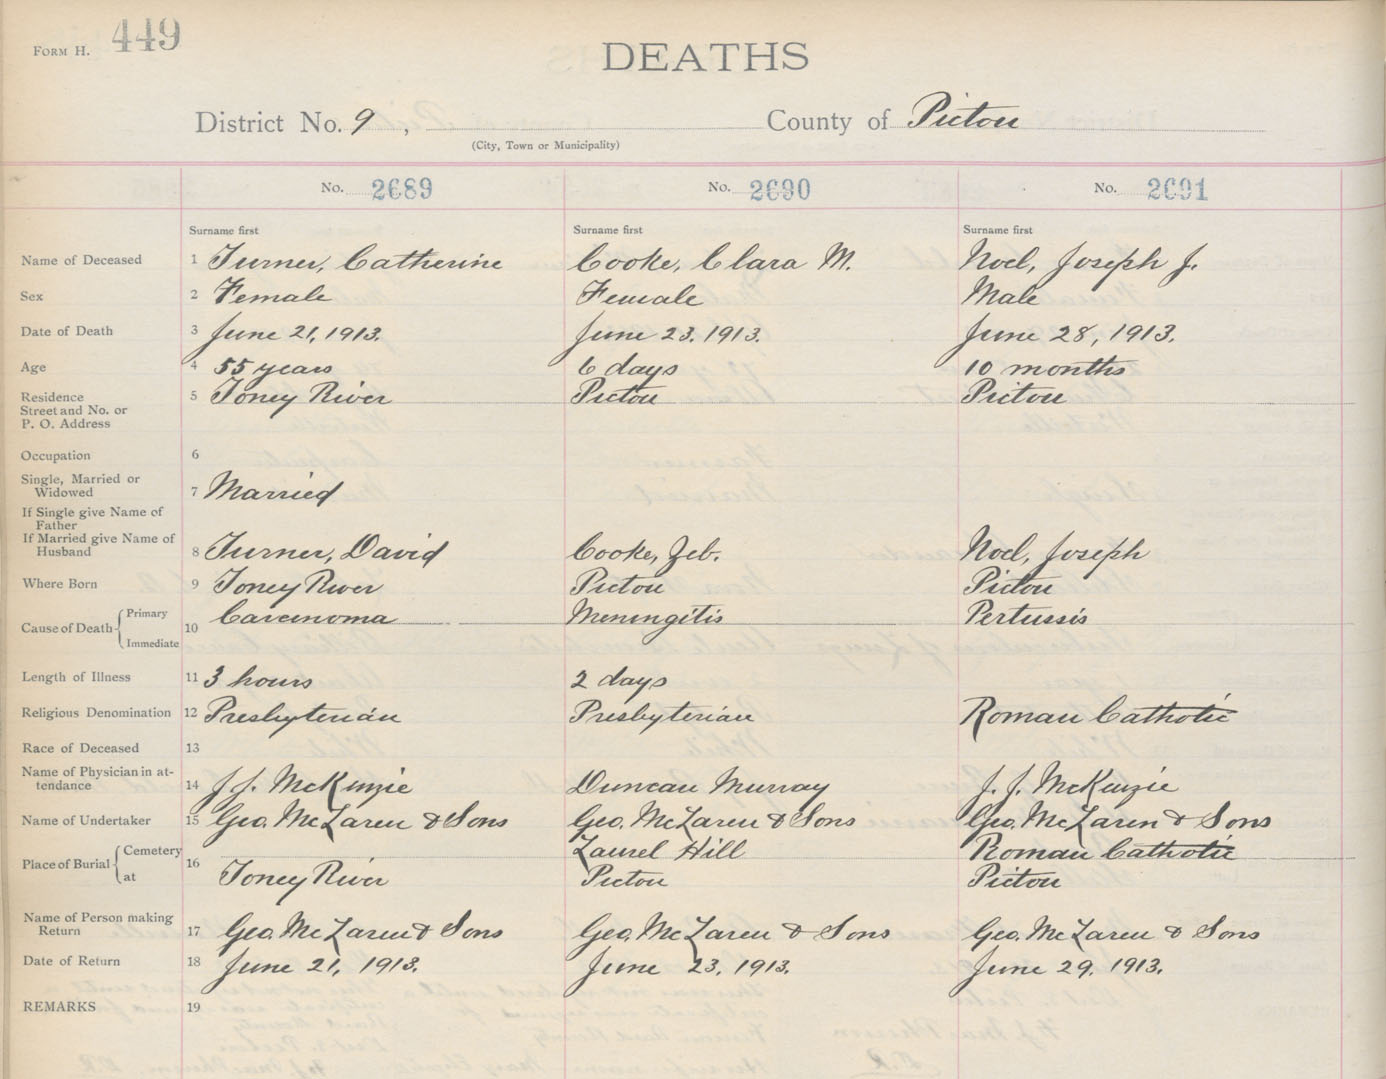 FORM H. 449
DEATHS
District No. 9, County of Pictou
(City, Town or Municipality)
No. 2689 No. 2690 No. 2691
Surname first Surname first Surname first
Name of Deceased 1 Turner, Catherine Cooke, Clara M. Noel, Joseph J.
Sex 2 Female Female Male
Date of Death 3 June 21, 1913. June 23. 1913. June 28, 1913.
Age 4 55 years 6 days 10 months
Residence 5 Toney River Pictou Pictou
Street and No. or
P. O. Address
Occupation 6
Single, Married or
Widowed 7 Married
If Single give Name of
Father
If Married give Name of
Husband 8 Turner, David Cooke, Zeb. Noel, Joseph
Where Born 9 Toney River Pictou Pictou
Cause of Death Primary 10 Carcinoma Meningitis Pertussis
Immediate
Length of Illness 11 3 hours 2 days
Religious Denomination 12 Presbyterian Presbyterian Roman Catholic
Race of Deceased 13
Name of Physician in at-
tendance 14 J. J. McKenzie Duncan Murray J. J. McKenzie
Name of Undertaker 15 Geo. McLaren & Sons Geo. McLaren & Sons Geo. McLaren & Sons
Place of Burial Cemetery 16 Laurel Hill Roman Catholic
at Toney River Pictou Pictou
Name of Person making
Return 17 Geo. McLaren & Sons Geo. McLaren & Sons Geo. McLaren & Sons
Date of Return 18 June 21, 1913. June 23. 1913. June 29. 1913.
REMARKS 19